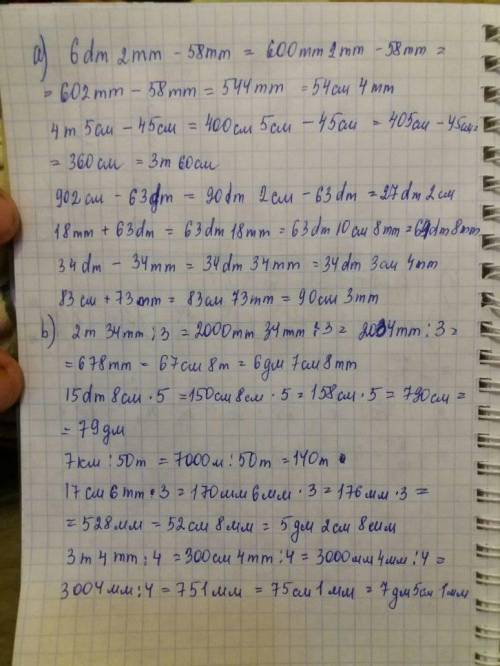 a) 6dm 2mm - 58mm = 600mm 2mm - 58mm =
= 602mm - 58mm = 544mm = 54см 4mm
4m 5см - 45см = 400см 5см - 45см = 405см - 45см =
= 360см = 3m 60см
902см - 63dm = 90dm 2см - 63dm = 27dm 2см
18mm + 63dm = 63dm 18mm = 63dm 10см 8mm = 64dm 8mm
34dm - 34mm = 34dm 34mm = 34dm 3см 4mm
83см + 73mm = 83см 73mm = 90см 3mm
b) 2m 34mm : 3 = 2000mm 34mm : 3 = 2034mm : 3 =
= 678mm = 67см 8m = 6дм 7см 8mm
15dm 8см · 5 = 150см 8см · 5 = 158см · 5 = 790см =
= 79дм
7км : 50m = 7000м : 50m = 140m
17см 6mm · 3 = 170мм 6мм · 3 = 176мм · 3 =
= 528мм = 52см 8мм = 5дм 2см 8мм
3m 4mm : 4 = 300см 4mm : 4 = 3000мм 4мм : 4 =
3004мм : 4 = 751мм = 75см 1мм = 7дм 5см 1мм